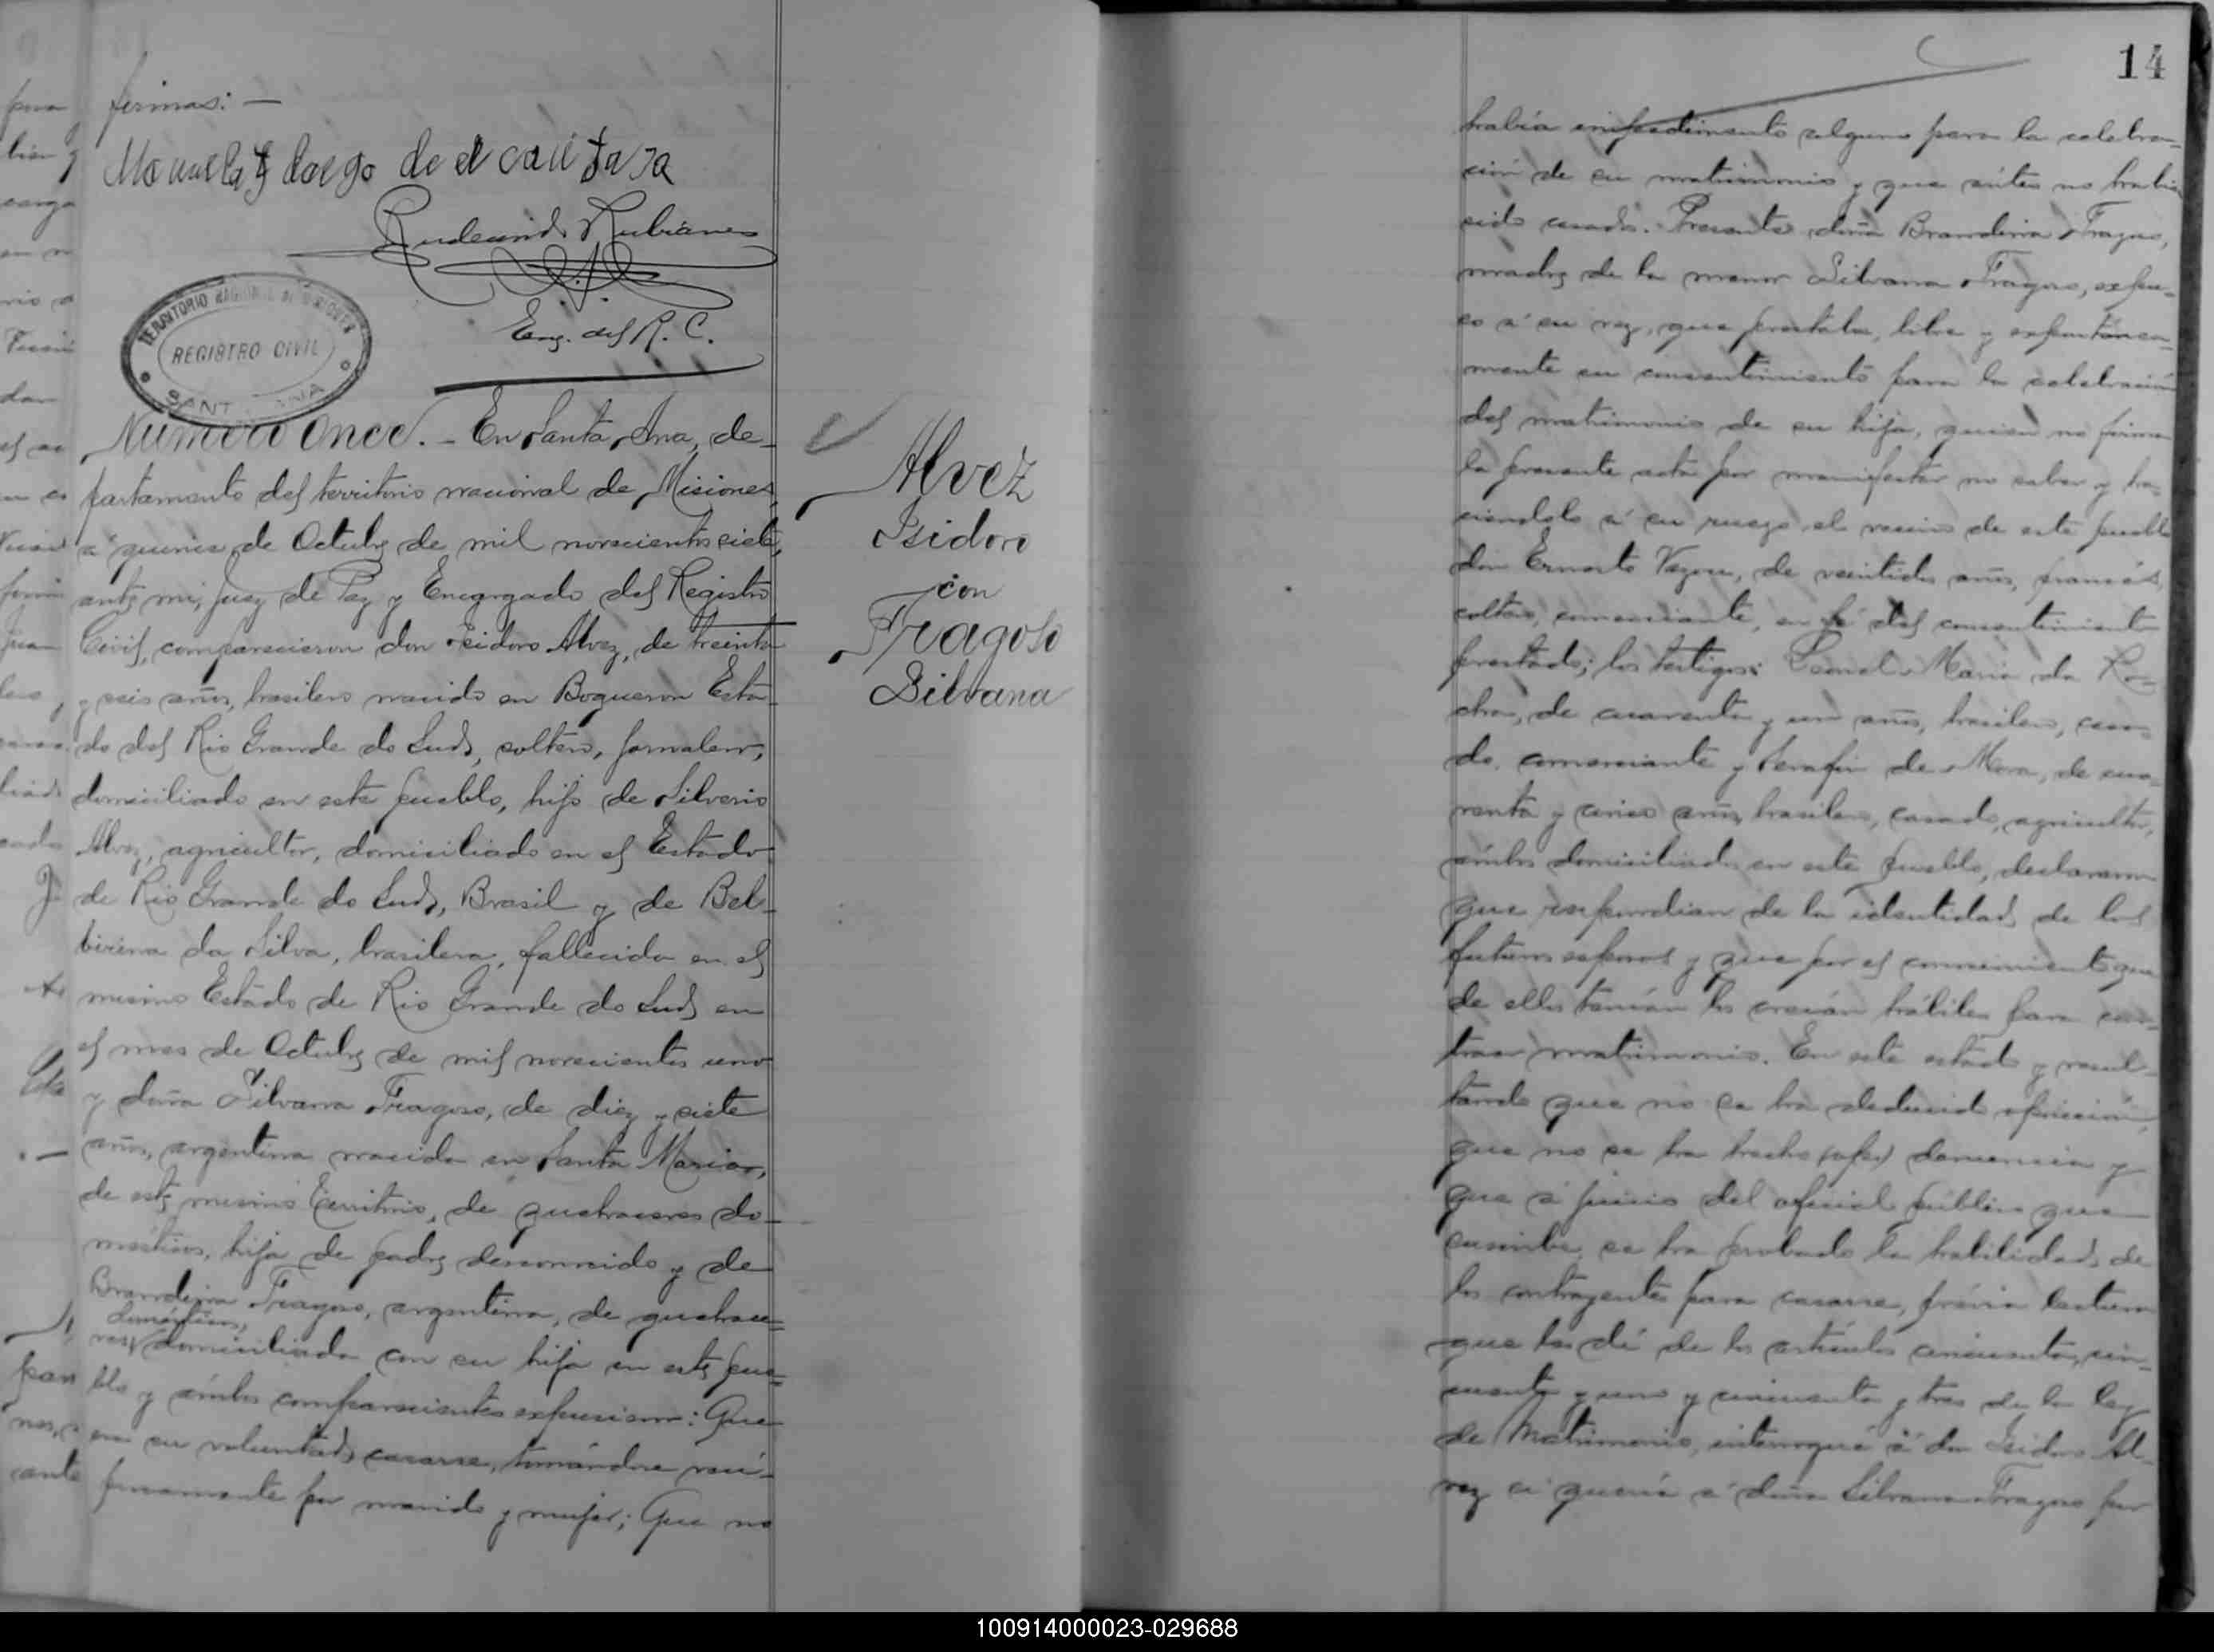 firmas: —
Manuela G dorgo de el cautara
Rudecindo Rubianes
Enc. del R. C.
TERRITORIO NACIONAL DE MISIONES
REGISTRO CIVIL
SANTA ANA
Número Once. - En Santa Ana, de-
partamento del territorio nacional de Misiones,
a quince de Octubre de mil novecientos siete,
ante mi, Juez de Paz y Encargado del Registro
Civil, comparecieron don Isidoro Alvez, de treinta
y seis años, brasilero nacido en Boqueron Esta-
do del Rio Grande do Sud, soltero, jornalero,
domiciliado en este pueblo, hijo de Silverio
Alvez, agricultor, domiciliado en el Estado
de Rio Grande do Sud, Brasil y de Bel-
birina da Silva, brasilera, fallecida en el
mismo Estado de Rio Grande do Sud en
el mes de Octubre de mil novecientos uno
y doña Silvana Fragoso, de diez y siete
años, argentina nacida en Santa Maria,
de este mismo Territorio, de quehaceres do-
mésticos, hija de padre desconocido y de
Brandina Fragoso, argentina, de quehace-
domésticos,
res, domiciliada con su hija en este pue-
blo y ámbos comparecientes expusieron: Que
era su voluntad, casarse, tomándose reci-
procamente por marido y mujer; Que no
Alvez
Isidoro
con
Fragoso
Silvana
14
había impedimento alguno para la celebra-
ción de su matrimonio y que ántes no habia
sido casado. Presente doña Brandina Fragoso,
madre de la menor Silvana Fragoso, expu-
so a su vez, que prestaba, libre y espontánea-
mente su consentimiento para la celebración
del matrimonio de su hija, quien no firma
la presente acta por manifestar no saber y ha-
ciendolo a su ruego el vecino de este pueblo
don Ernesto, de veintidos años, francés,
soltero, comerciante, en fé del consentimiento
prestado; los testigos: Leonel Maria da Ro-
cha, de cuarenta y un años, brasilero, casa-
do, comerciante y Serafin de Mora, de cua-
renta y cinco años, brasilero, casado, agricultor,
ámbos domiciliados en este pueblo, declararon
que respondian de la identidad de los
futuros esposos y que por el conocimiento que
de ellos tenían los creían hábiles para con-
traer matrimonio. En este estado y resul-
tando que no se ha deducido oposición,
que no se ha hecho denuncia y
que a juicio del oficial público que
suscribe, se ha probado la habilidad de
los contrayentes para casarse, prévia lectura
que les dí de los artículos cincuenta, cin-
cuenta y uno y cincuenta y tres de la ley
de Matrimonio, interrogué á don Isidoro Al-
vez si quería a doña Silvana Fragoso por
100914000023-029688